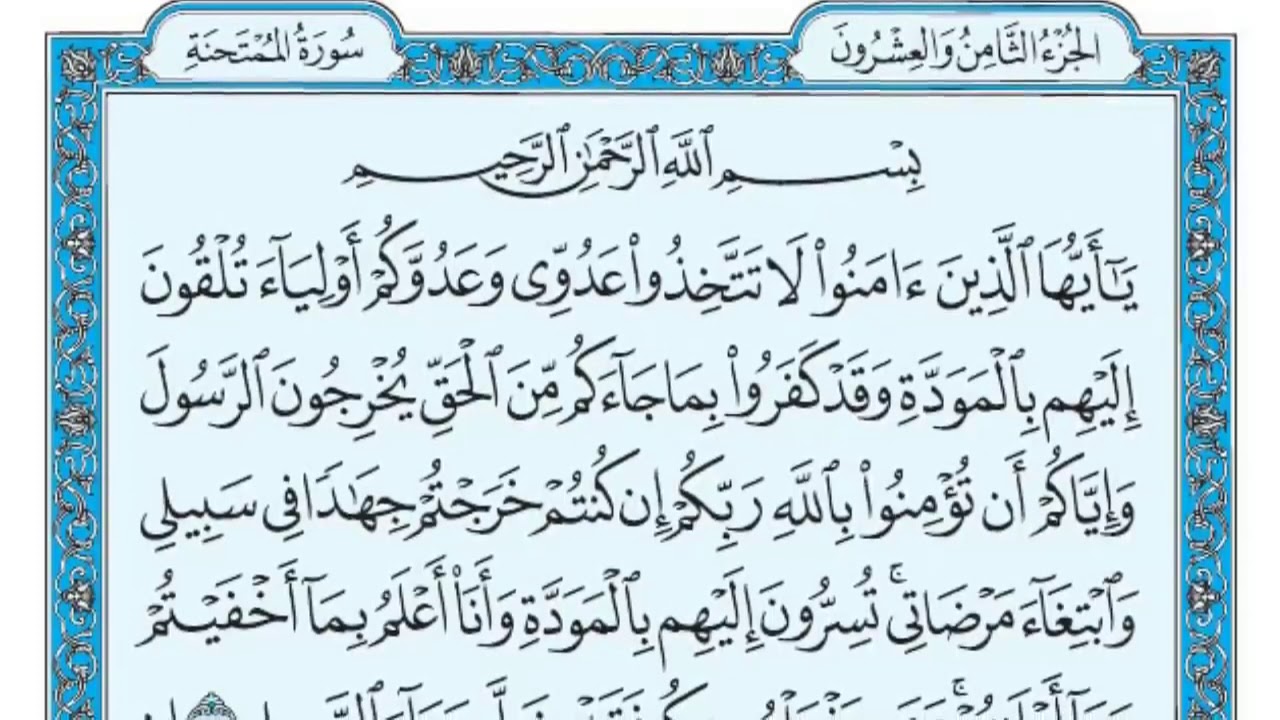 الجُزْءُ الثَّامِنُ وَالعِشْرُونَ
سُورَةُ المُمْتَحنَةِ
بِسْمِ ٱللَّهِ ٱلرَّحْمَٰنِ ٱلرَّحِيمِ
يَٰٓأَيُّهَا ٱلَّذِينَ ءَامَنُوا۟ لَا تَتَّخِذُوا۟ عَدُوِّى وَعَدُوَّكُمْ أَوْلِيَآءَ تُلْقُونَ
إِلَيْهِم بِٱلْمَوَدَّةِ وَقَدْ كَفَرُوا۟ بِمَا جَآءَكُم مِّنَ ٱلْحَقِّ يُخْرِجُونَ ٱلرَّسُولَ
وَإِيَّاكُمْ أَن تُؤْمِنُوا۟ بِٱللَّهِ رَبِّكُمْ إِن كُنتُمْ خَرَجْتُمْ جِهَٰدًا فِى سَبِيلِى
وَٱبْتِغَآءَ مَرْضَاتِى ۚ تُسِرُّونَ إِلَيْهِم بِٱلْمَوَدَّةِ وَأَنَا۠ أَعْلَمُ بِمَآ أَخْفَيْتُمْ